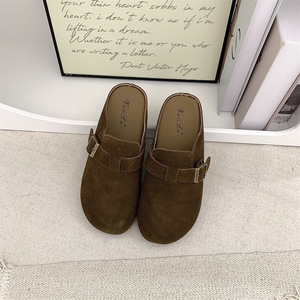 your thin heart sobbs in my
heart. i don't know as if i'm
lifting in a dream.
Whether it is me or you who
are writing a letter.
Poet: Victor Hugo